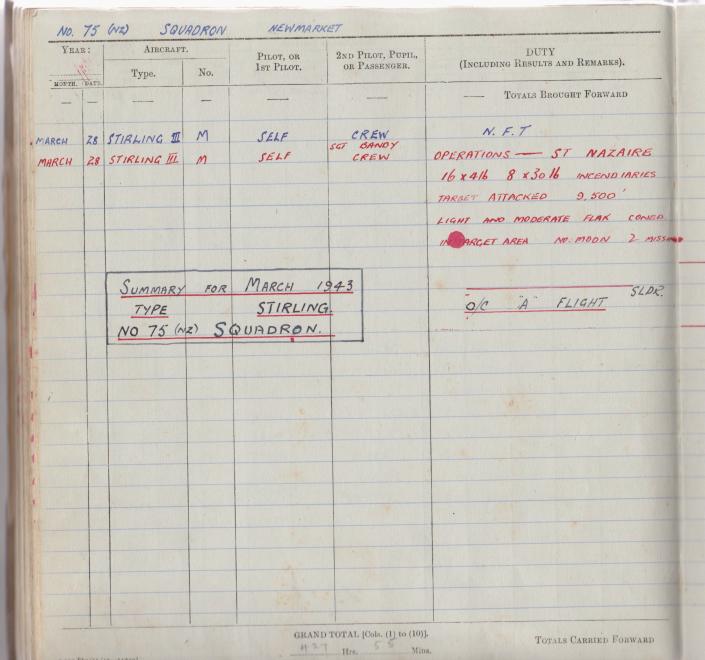 No. 75 (NZ) SQUADRON NEWMARKET
YEAR: AIRCRAFT. PILOT, OR 1ST PILOT. 2ND PILOT, PUPIL, OR PASSENGER. DUTY (INCLUDING RESULTS AND REMARKS).
MONTH. DATE. Type. No.
— — — — — — — TOTALS BROUGHT FORWARD
MARCH 28 STIRLING III M SELF CREW N.F.T
SGT BANDY
MARCH 28 STIRLING III M SELF CREW OPERATIONS — ST NAZAIRE
16 x 4lb 8 x 30 lb INCENDIARIES
TARGET ATTACKED 9,500'
LIGHT AND MODERATE FLAK CONED
IN TARGET AREA NO. MOON 2
SUMMARY FOR MARCH 1943
TYPE STIRLING.
NO 75 (NZ) SQUADRON.
SLDR.
O/C "A" FLIGHT
GRAND TOTAL [Cols. (1) to (10)].
427 Hrs. 55 Mins.
TOTALS CARRIED FORWARD